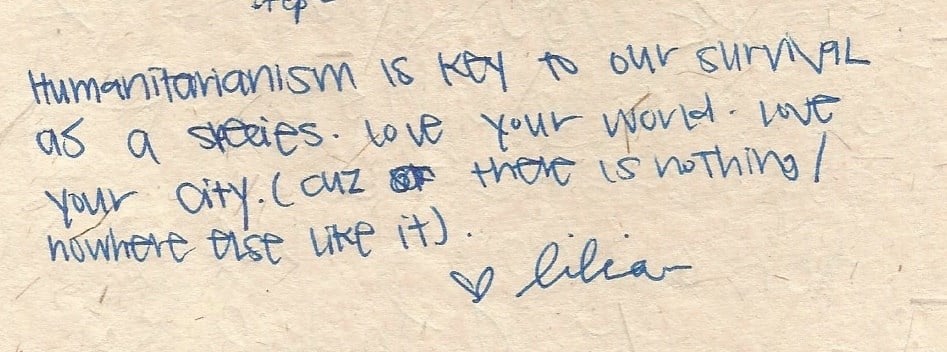 step
Humanitarianism is key to our survival
as a species. love your world. love
your city. (cuz there is nothing/
nowhere else like it).
♡ lilian